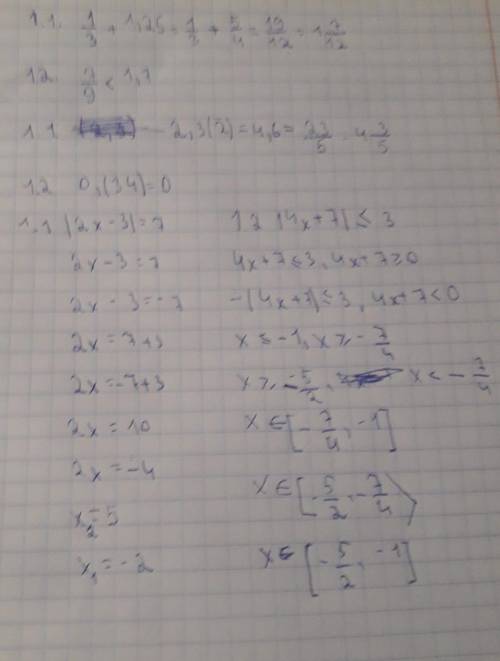 1.1. 1/3 + 1,25 = 1/3 + 5/4 = 19/12 = 1 7/12
1.2. 7/9 < 1,7
1.1 2,3(2) = 4,6 = 23/5 = 4 3/5
1.2 0,(34) = 0
1.1 |2x - 3| = 7
2x - 3 = 7
2x - 3 = -7
2x = 7+3
2x = -7+3
2x = 10
2x = -4
x₂ = 5
x₁ = -2
1.2 |4x + 7| ≤ 3
4x + 7 ≤ 3, 4x + 7 ≥ 0
-(4x + 7) ≤ 3, 4x + 7 < 0
x ≤ -1, x ≥ -7/4
x ≥ -5/2, x < -7/4
x ∈ [-7/4, -1]
x ∈ [-5/2, -7/4)
x ∈ [-5/2, -1]